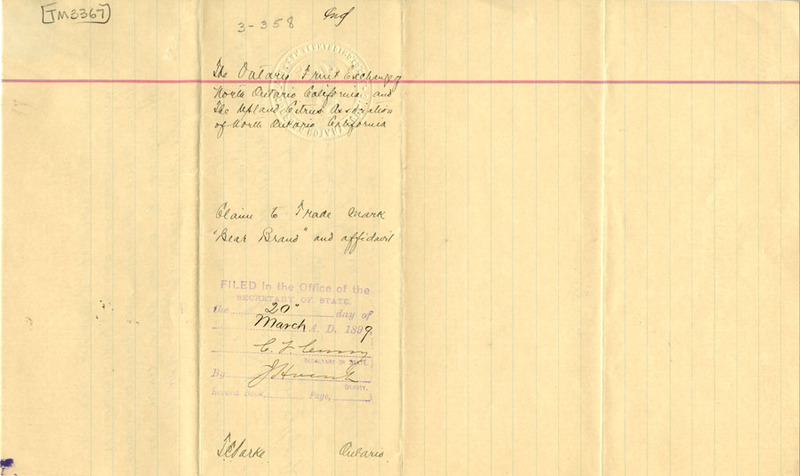 [TM3367]
3-358
Ind
The Ontario Fruit Exchange of
North Ontario California and
The Upland Citrus Association
of North Ontario California
Claim to Trade Mark
"Bear Brand" and affidavit
FILED in the Office of the
SECRETARY OF STATE
the 20" day of
March A. D. 1899.
C. F. Curry
SECRETARY OF STATE.
By J Hoesch
DEPUTY.
Record Book, Page,
Ontario